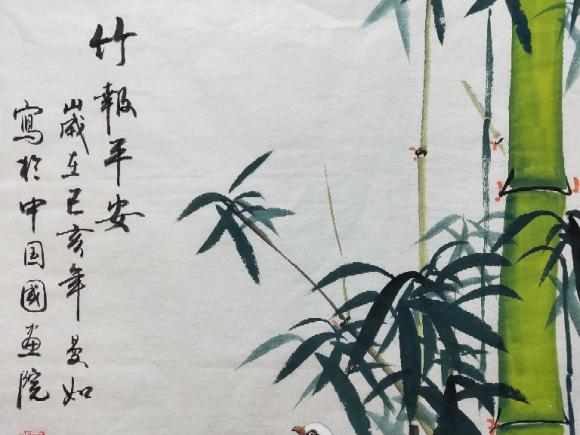 竹報平安
歲在己亥年曼如
寫於中国國画院